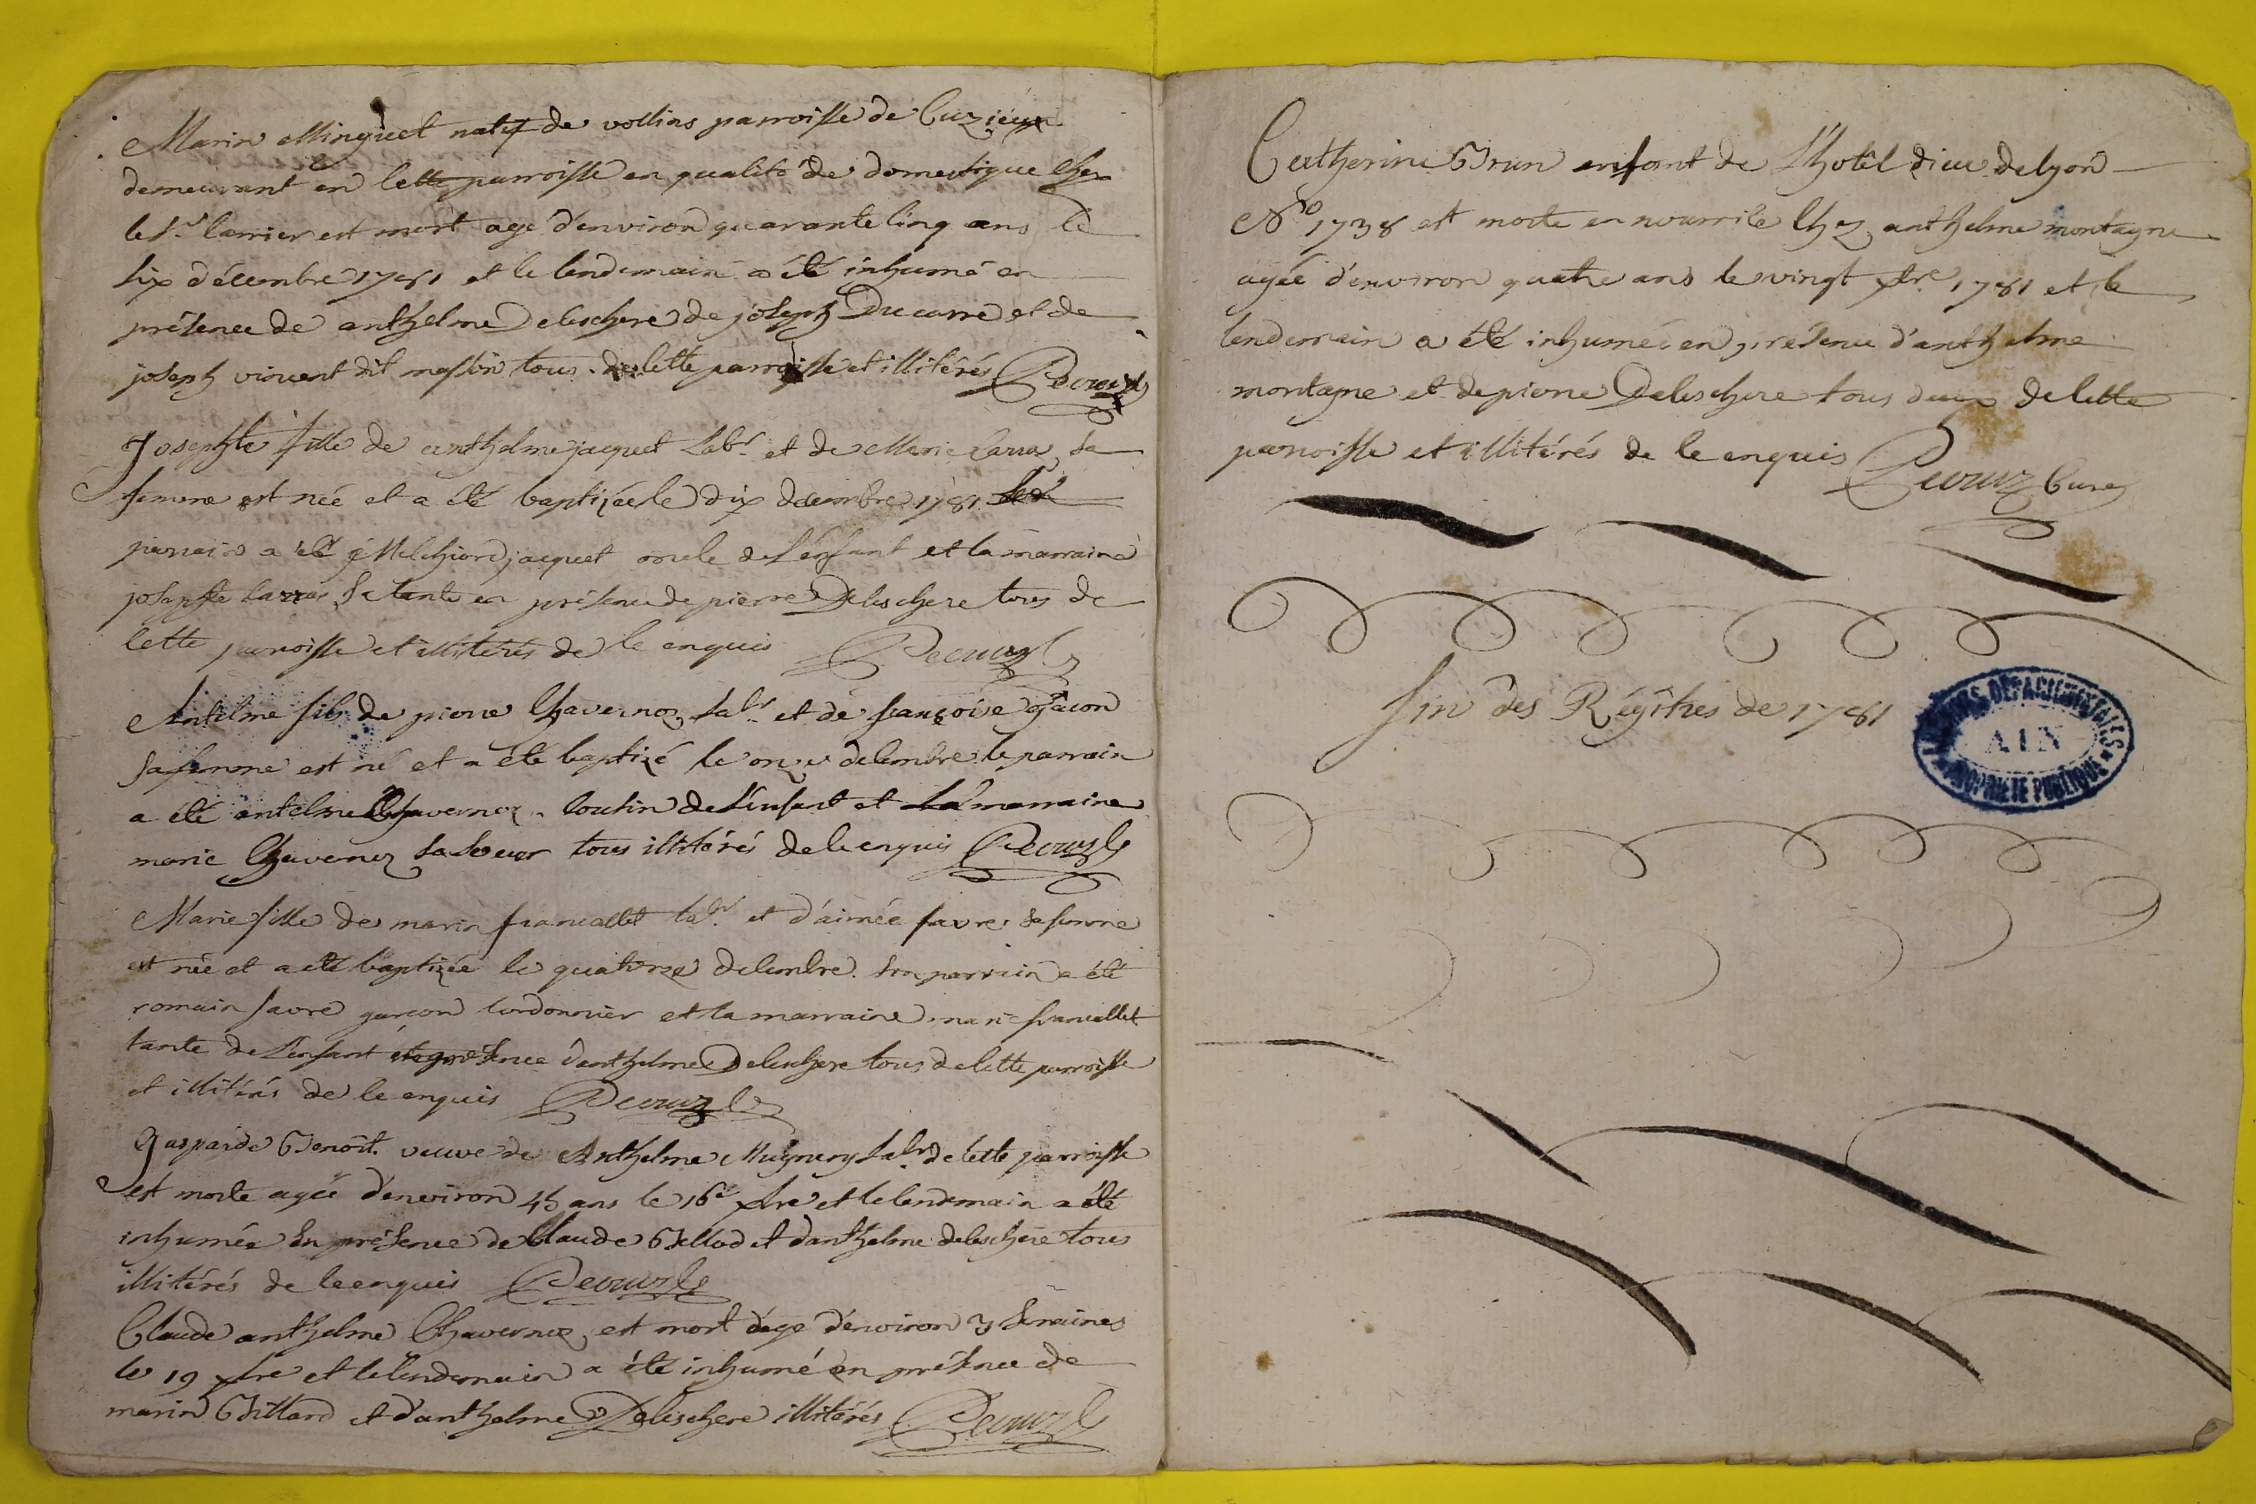 Marin Minguet natif de vollins parroisse de Cuzieux
demeurant en cette parroisse en qualité de domestique chez
le Sr. Carrier est mort agé d'environ quarante cinq ans le
six décembre 1781 et le lendemain a été inhumé en
présence de anthelme Deleschere de joseph Ducarre et de
joseph vincent dit masson tous de cette parroisse et illitérés Decouz C
Josephte fille de anthelme jacquet Labr. et de Marie Carra sa
femme est née et a été baptizée le dix decembre 1781
parrain a été Melchiord jacquet oncle de L'enfant et la marraine
josephte Carra Sa tante en présence de pierre Deleschere tous de
cette parroisse et illiterés de ce enquis Decouz C
Antelme fils de pierre Chavernoz Labr. et de françoise gacon
sa femme est né et a été baptizé le onze decembre le parrain
a été antelme Chavernoz cousin de L'enfant et La marraine
marie Chavernoz sa soeur tous illitérés de ce enquis Decouz C
Marie fille de marin francallet labr. et d'aimée favre sa femme
est née et a été baptizée le quatorze decembre. son parrain a été
romain favre garcon cordonnier et la marraine marie francallet
tante de L'enfant en présence d'anthelme Deleschere tous de cette parroisse
et illitérés de ce enquis Decouz C
Gasparde Benoît veuve de Anthelme Mugnery Labr. de cette parroisse
est morte agée d'environ 45 ans le 16e xbre et le lendemain a été
inhumée En présence de Claude Billod et d'anthelme deleschere tous
illitérés de ce enquis Decouz C
Claude anthelme Chavernoz est mort d'age d'environ 3 semaines
le 19 xbre et le lendemain a été inhumé en présence de
marin Billard et d'anthelme Deleschere illitérés Decouz C
Catherine Brun enfant de L'hotêl dieu de lyon
No 1738 est morte en nourrice chez anthelme montagne
agée d'environ quatre ans le vingt xbre 1781 et le
lendemain a été inhumée en présence d'anthelme
montagne et de pierre Deleschere tous deux de cette
parroisse et illitérés de ce enquis Decouz Curé
fin des Régîtres de 1781
ARCHIVES DÉPARTEMENTALES
AIN
PROPRIÉTÉ PUBLIQUE